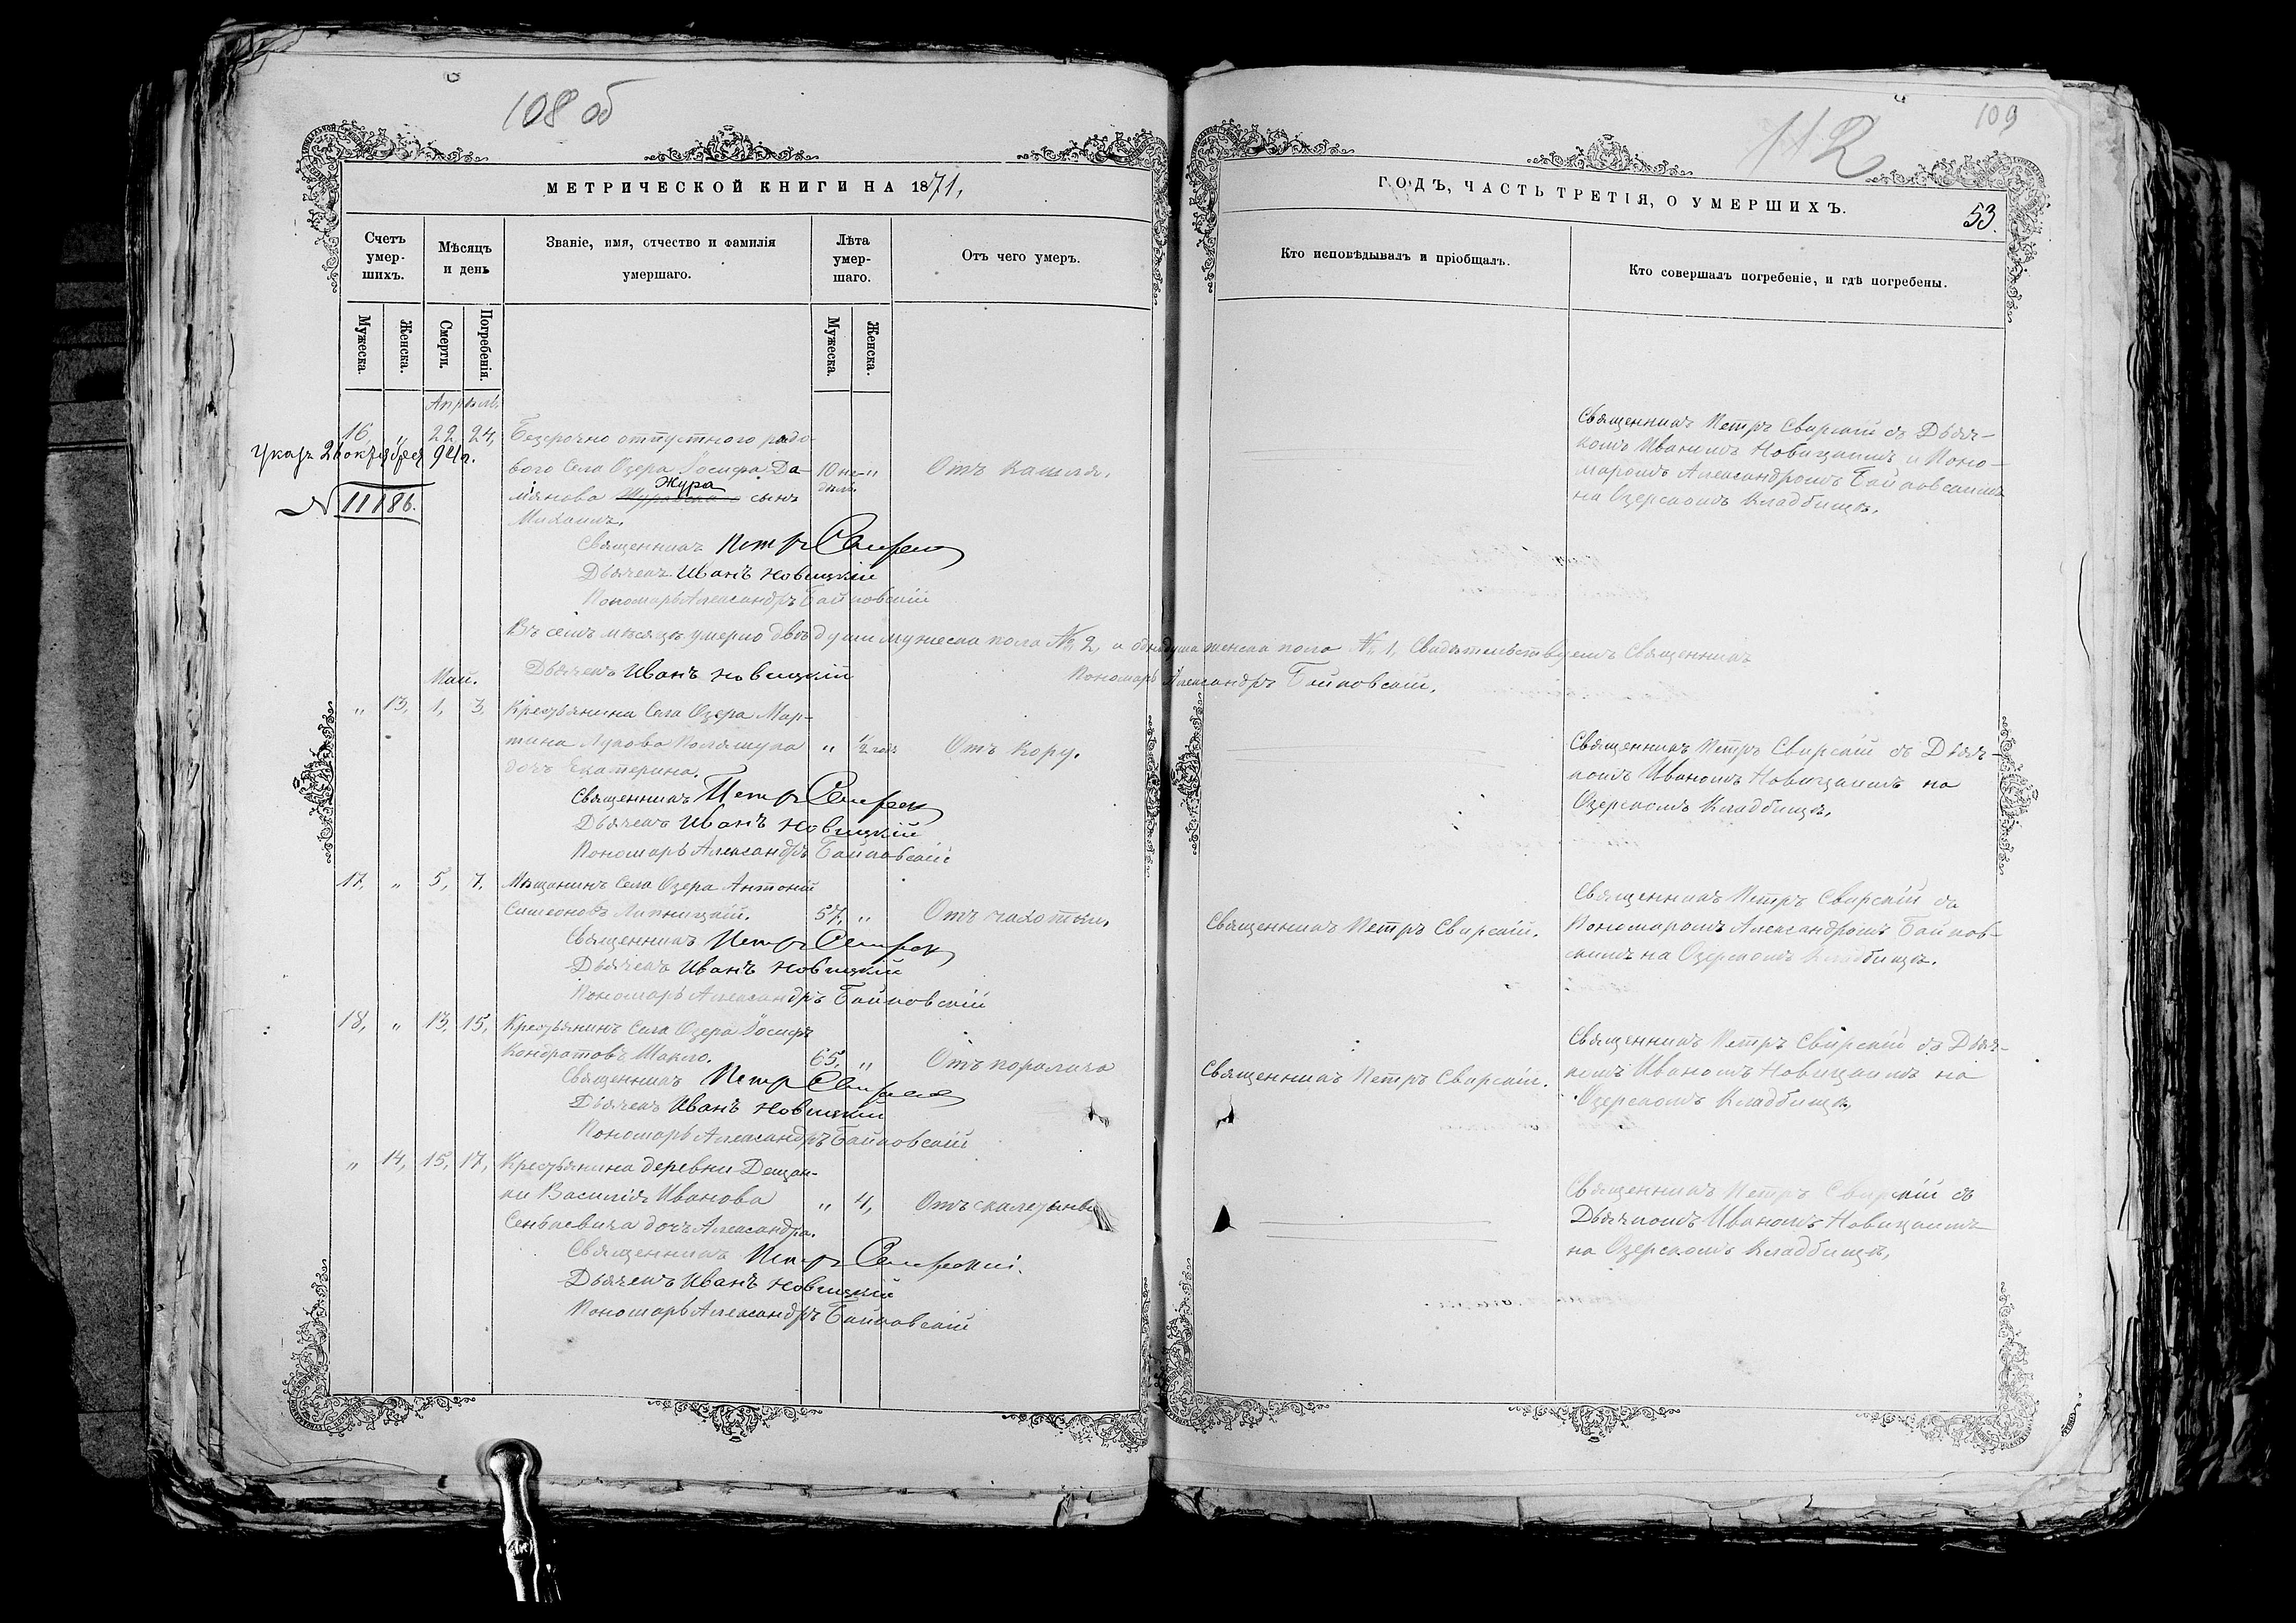 108 об
МЕТРИЧЕСКОЙ КНИГИ НА 1871,
Счетъ умер-шихъ.
Мѣсяцъ и день
Званіе, имя, отчество и фамилія умершаго.
Лѣта умер-шаго.
Отъ чего умеръ.
Мужеска.
Женска.
Смерти.
Погребенія.
Мужеска.
Женска.
Апрѣль.
16, " 22, 24, Безсрочно отпустнаго рядо-
Указъ 26 октября 94 г.
вого Села Озера Іосифа Да- 10 не- " Отъ Кашля.
дѣль.
Жура
міянова сынъ
N 11186.
Михаилъ.
Священникъ Петръ Свирскій
Дьячекъ Иванъ Новицкій
Пономарь Александръ Байковскій
Въ семъ мѣсяцѣ умерло двѣ души мужеска пола № 2, и одна душа женска пола № 1, Свидѣтельствуемъ Священникъ
Дьячекъ Иванъ Новицкій Пономарь Александръ Байковскій.
Май.
" 13, 1, 3, Крестьянина Села Озера Мар-
тина " 1/2 года Отъ Кору.
дочь Екатерина.
Священникъ Петръ Свирскій
Дьячекъ Иванъ Новицкій
Пономарь Александръ Байковскій
17, " 5, 7, Мѣщанинъ Села Озера Антоній
Симеоновъ Липницкій. 57, " Отъ чахотки.
Священникъ Петръ Свирскій
Дьячекъ Иванъ Новицкій
Пономарь Александръ Байковскій
18, " 13, 15, Крестьянинъ Села Озера Іосифъ
Кондратовъ Шакло. 65, " Отъ паралича
Священникъ Петръ Свирскій
Дьячекъ Иванъ Новицкій
Пономарь Александръ Байковскій
" 14, 15, 17, Крестьянина деревни Дещан-
ки Василія Иванова " 4, Отъ
Сенькевича дочь Александра.
Священникъ Петръ Свирскій.
Дьячекъ Иванъ Новицкій
Пономарь Александръ Байковскій
112
109
ГОДЪ, ЧАСТЬ ТРЕТІЯ, О УМЕРШИХЪ.
53.
Кто исповѣдывалъ и пріобщалъ.
Кто совершалъ погребеніе, и гдѣ погребены.
Священникъ Петръ Свирскій съ Дьяч-
комъ Иваномъ Новицкимъ и Поно-
маромъ Александромъ Байковскимъ
на Озерскомъ Кладбищѣ.
Священникъ Петръ Свирскій съ Дьяч-
комъ Иваномъ Новицкимъ на
Озерскомъ Кладбищѣ.
Священникъ Петръ Свирскій съ
Священникъ Петръ Свирскій. Пономаромъ Александромъ Байков-
скимъ на Озерскомъ Кладбищѣ.
Священникъ Петръ Свирскій съ Дьяч-
Священникъ Петръ Свирскій. комъ Иваномъ Новицкимъ на
Озерскомъ Кладбищѣ,
Священникъ Петръ Свирскій съ
Дьячкомъ Иваномъ Новицкимъ
на Озерскомъ Кладбищѣ.